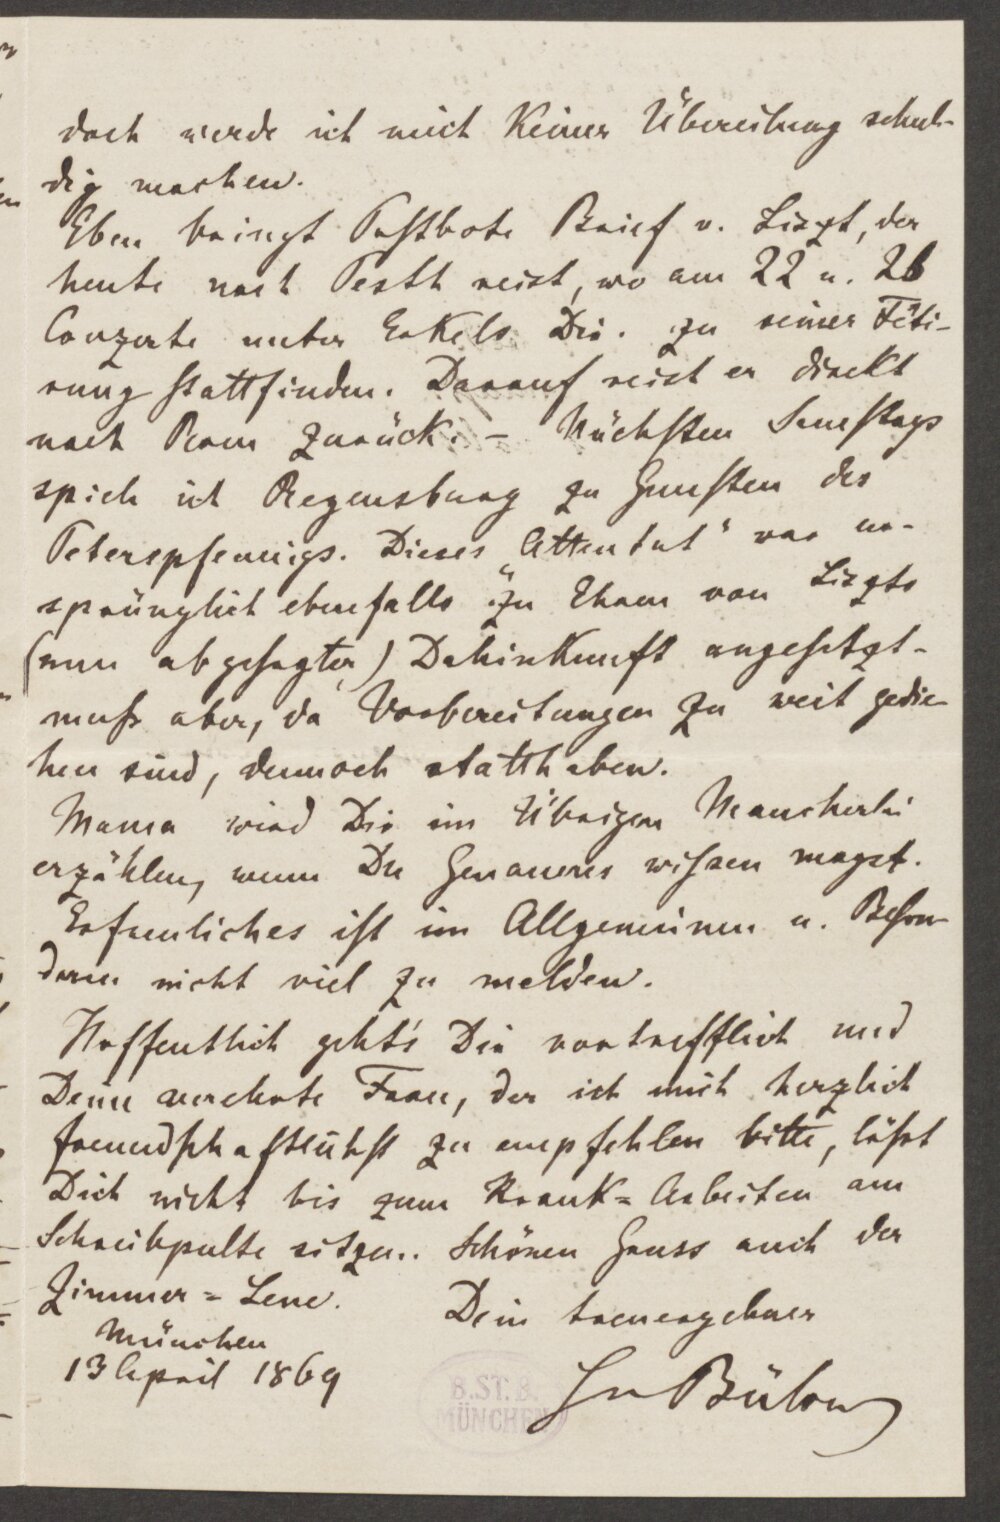 doch werde ich mich keiner Übereilung schul-
dig machen.
Eben bringt Postbote Brief v. Liszt, der
heute nach Pesth reist, wo am 22 u. 26
Conzerte unter Erkels Dir. zu seiner Fêti-
rung stattfinden. Darauf reist er direkt
nach Rom zurück. – Nächsten Samstags
spiele ich Regensburg zu Gunsten des
Peterspfennigs. Dieses „Attentat“ war ur-
sprünglich ebenfalls zu Ehren von Liszts
(nun abgesagter) Dahinkunft angesetzt –
muß aber, da Vorbereitungen zu weit gedie-
hen sind, dennoch statthaben.
Mama wird Dir im Übrigen Mancherlei
erzählen, wenn Du Genaueres wissen magst.
Erfreuliches ist im Allgemeinen u. Beson-
deren nicht viel zu melden.
Hoffentlich geht's Dir vortrefflich und
Deine verehrte Frau, der ich mich herzlich
freundschaftlichst zu empfehlen bitte, läßt
Dich nicht bis zum Krank-Arbeiten am
Schreibpulte sitzen. Schönen Gruss auch der
Zimmer-Lene.
Dein treuergebner
München
13 April 1869
HvBülow
B.ST.B.
MÜNCHEN